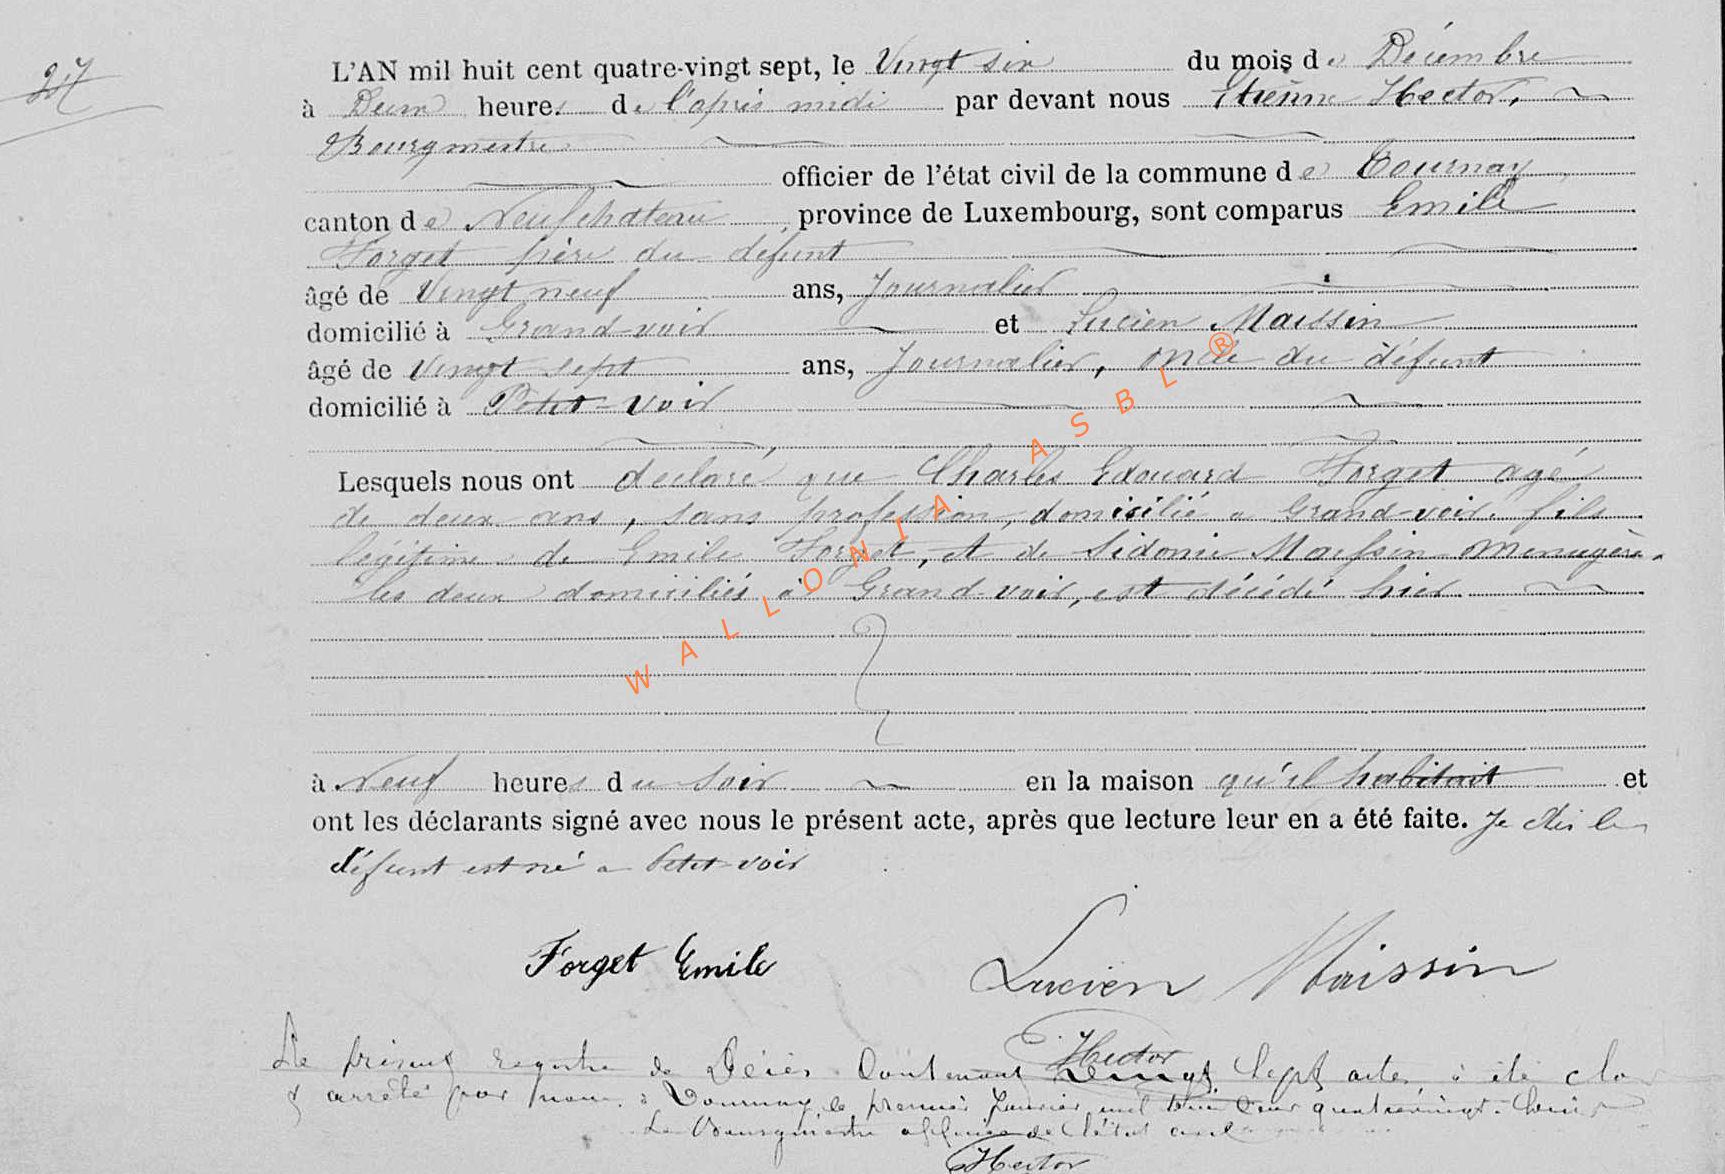 27
L'AN mil huit cent quatre-vingt sept, le Vingt six du mois de Décembre
à Deux heures de l'après midi par devant nous Etienne Hector,
Bourgmestre
officier de l'état civil de la commune de Tournay
canton de Neufchateau, province de Luxembourg, sont comparus Emile
Forget père du défunt
âgé de Vingt neuf ans, Journalier
domicilié à Grand-voir et Lucien Maissin
âgé de Vingt sept ans, Journalier, oncle du défunt
domicilié à Petit-voir
Lesquels nous ont déclaré que Charles Edouard Forget agé
de deux ans, sans profession, domicilié a Grand-voir, fils
légitime de Emile Forget, et de Sidonie Maissin menagère
les deux domiciliés à Grand-voir, est décédé hier
à Neuf heures du soir en la maison qu'il habitait et
ont les déclarants signé avec nous le présent acte, après que lecture leur en a été faite. Je dis le
défunt est né a Petit-voir
Forget Emile
Lucien Maissin
Hector
Le présent registre de Décès contenant Vingt sept actes a été clos
& arrêté par nous à Tournay le premier Janvier mil huit cent quatrevingt-huit
Le Bourgmestre officier de l'état civil
Hector
WALLONIA ASBL ®